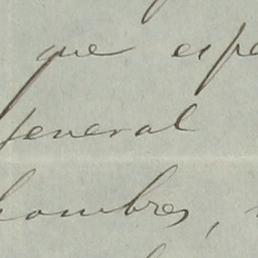 que espe
general
hombres,